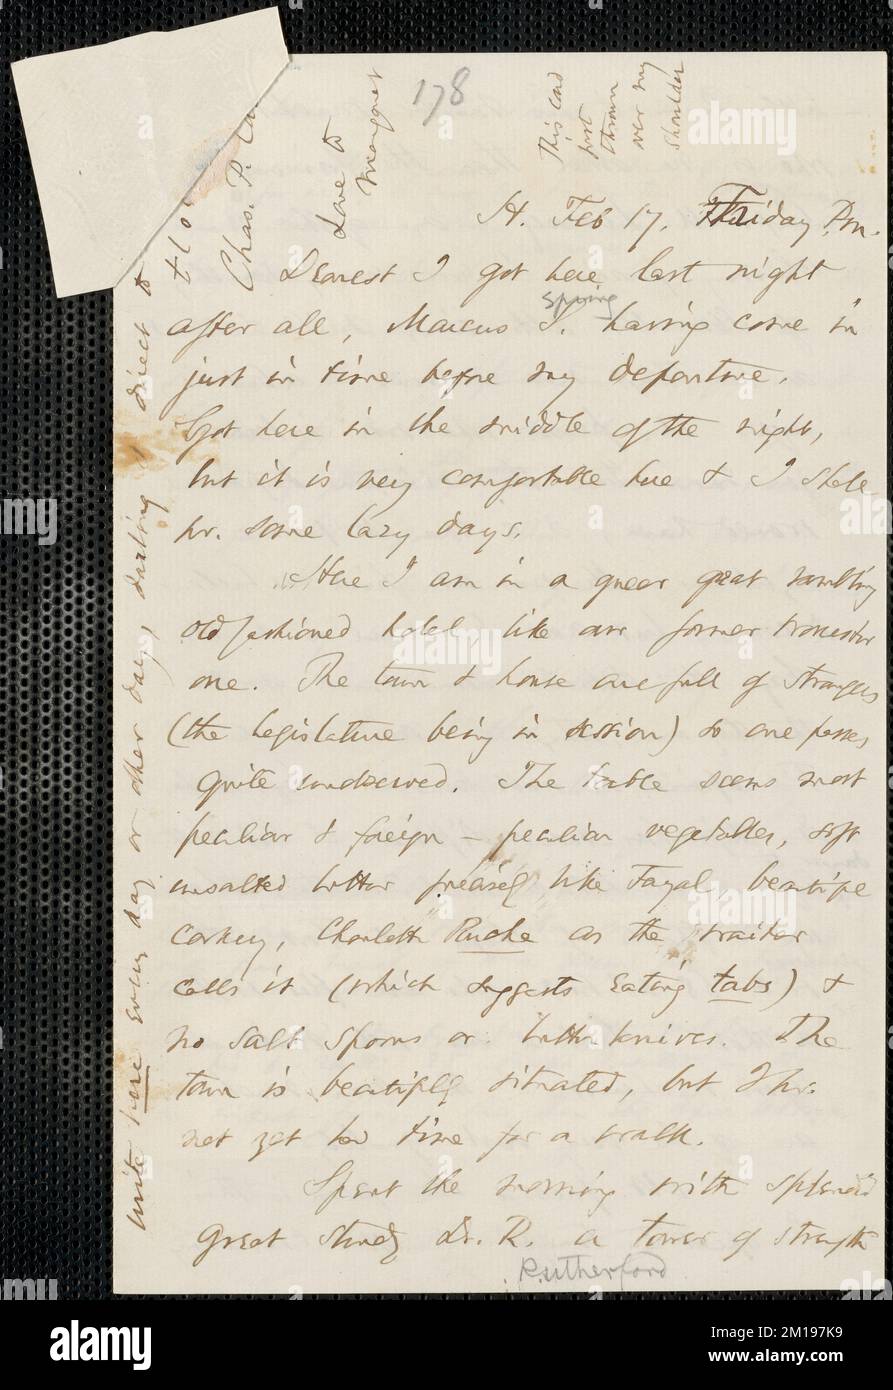 178
This card
just
thrown
over my
shoulder
Love to
Margaret
Chas. P.
H. Feb 17. Friday P.m.
Dearest I got here last night
spring
after all, Marcus S. having come in
just in time before my departure.
Got here in the middle of the night,
but it is very comfortable here & I shall
hv. some lazy days.
Here I am in a queer great rambling
old fashioned hotel, like our former Worcester
one. The town & house are full of strangers
(the legislature being in session) so one passes
quite unobserved. The table seems most
peculiar & foreign — peculiar vegetables, soft
unsalted butter pressed like Fayal, beautiful
cookery, Charlotte Ruche as the waiter
calls it (which suggests eating tabs) &
no salt spoons or butter knives. The
town is beautifully situated, but I hv.
not yet had time for a walk.
Spent the morning with splendid
great sturdy Dr. R. a tower of strength
Rutherford
write here every day or other day, darling, direct to
alamy
Image ID: 2M197K9
www.alamy.com